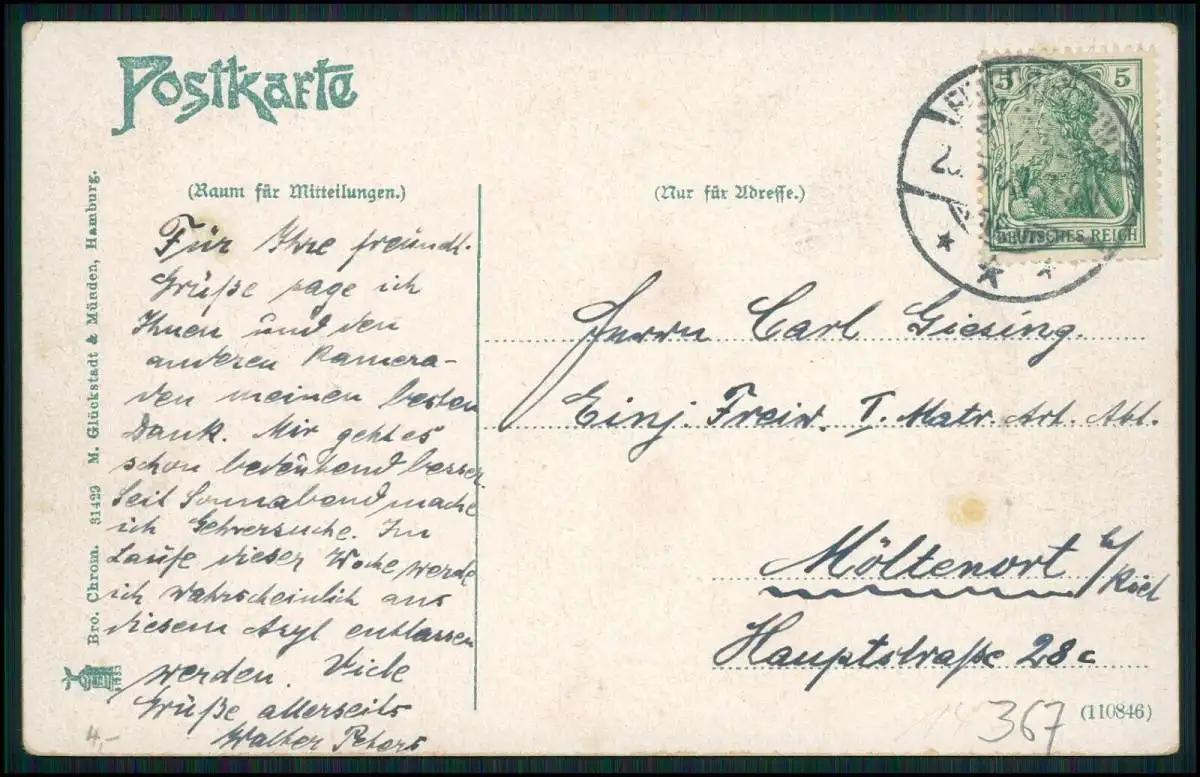 Postkarte
(Raum für Mitteilungen.)
Für Ihre freundl.
Grüße sage ich
Ihnen und den
anderen Kamera-
den meinen besten
Dank. Mir geht es
schon bedeutend besser.
Seit Sonnabend mache
ich Gehversuche. Im
Laufe dieser Woche werde
ich wahrscheinlich aus
diesem Asyl entlassen
werden. Viele
Grüße allerseits
Walter Peters
(Nur für Adresse.)
5 5
DEUTSCHES REICH
Herrn Carl Giesing.
Einj. Freiw. I. Matr. Art. Abt.
Möltenort b/
Kiel
Hauptstraße 28c
(110846)
367
4,-
Bro. Chrom. 31429 M. Glückstadt & Münden, Hamburg.